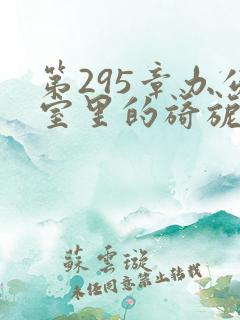 第295章办公
室里的旖旎
蘇雲璇
未经同意禁止转载